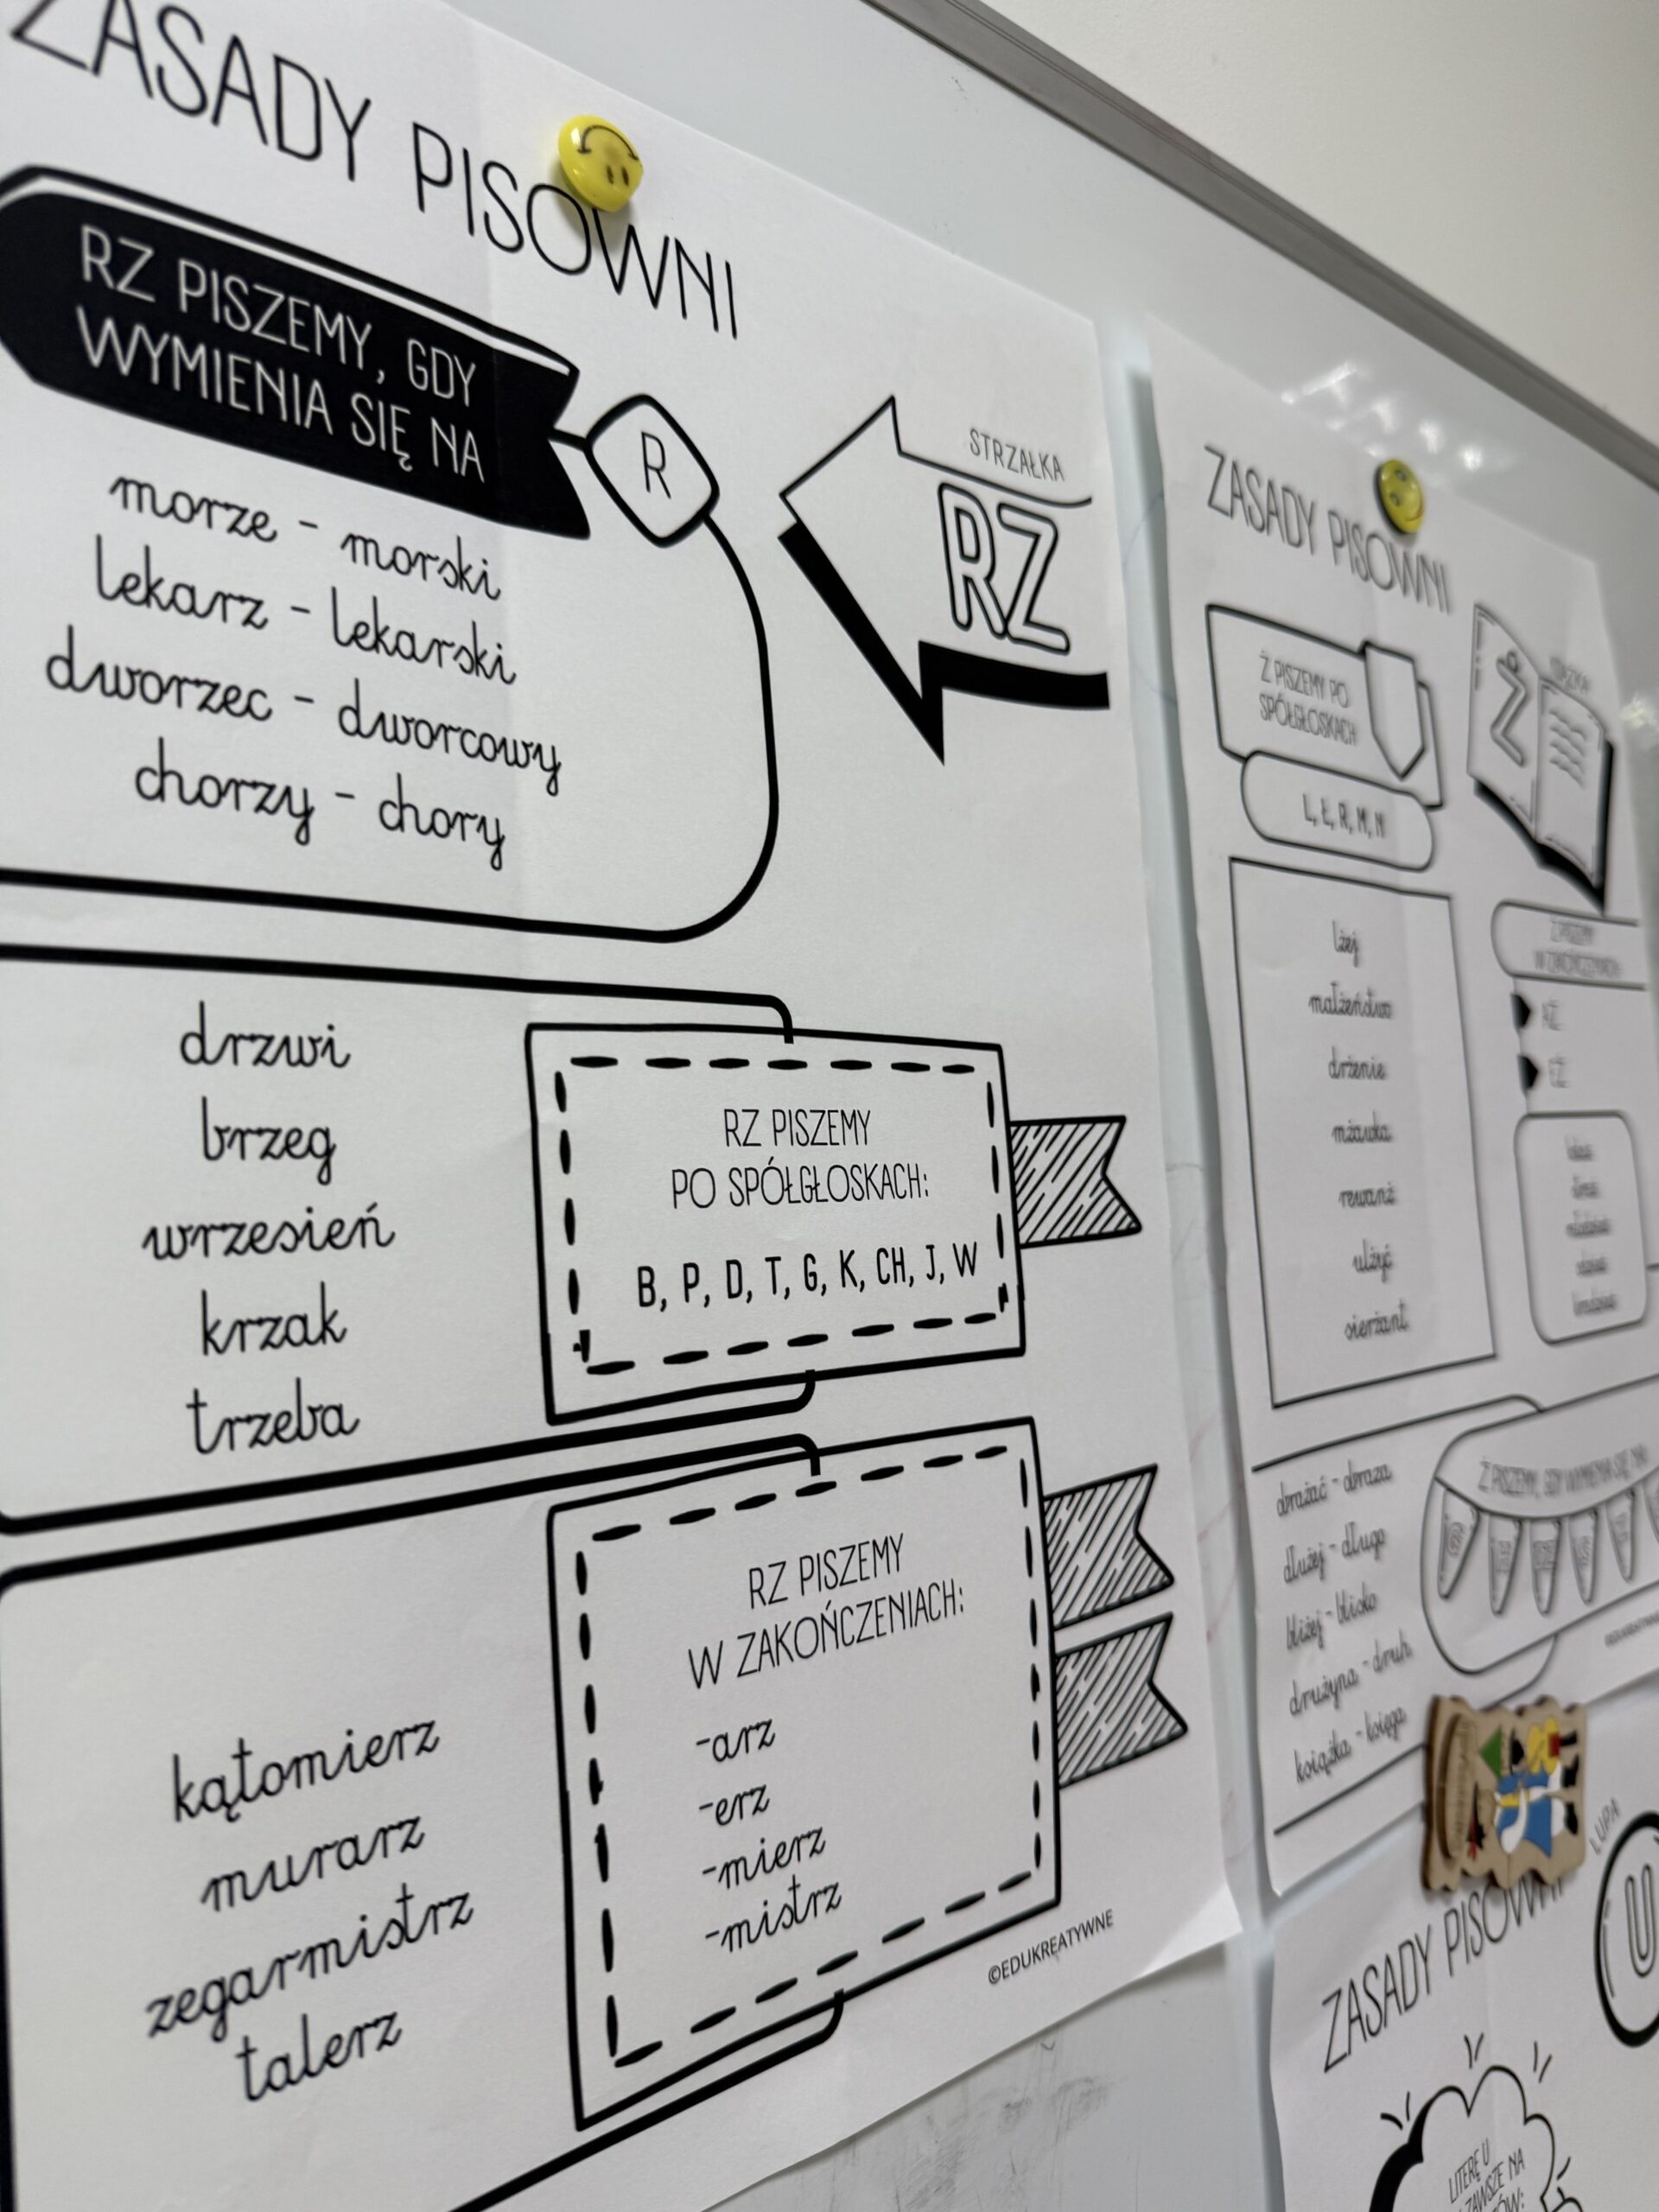 ZASADY PISOWNI
RZ PISZEMY, GDY
WYMIENIA SIĘ NA
R
morze - morski
lekarz - lekarski
dworzec - dworcowy
chorzy - chory
STRZAŁKA
RZ
drzwi
brzeg
wrzesień
krzak
trzeba
RZ PISZEMY
PO SPÓŁGŁOSKACH:
B, P, D, T, G, K, CH, J, W
kątomierz
murarz
zegarmistrz
talerz
RZ PISZEMY
W ZAKOŃCZENIACH:
-arz
-erz
-mierz
-mistrz
©EDUKREATYWNE
ZASADY PISOWNI
Ż PISZEMY PO
SPÓŁGŁOSKACH
L, Ł, R, M, N
lżej
małżeństwo
drżenie
mżawka
rewanż
ulżyć
sierżant
Ż
Ż PISZEMY
W ZAKOŃCZENIACH
AŻ
EŻ
obrażać - obraza
dłużej - długo
bliżej - blisko
drużyna - druh
książka - księga
Ż PISZEMY, GDY WYMIENIA SIĘ NA
ZASADY PISOWNI
LUPA
U
LITERĘ U